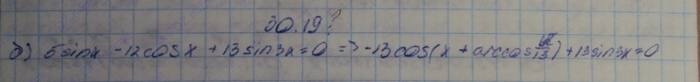 30.19?
б) 5sinx - 12cosx + 13sin3x = 0 => -13cos(x + arccos 12/13) + 13sin3x = 0